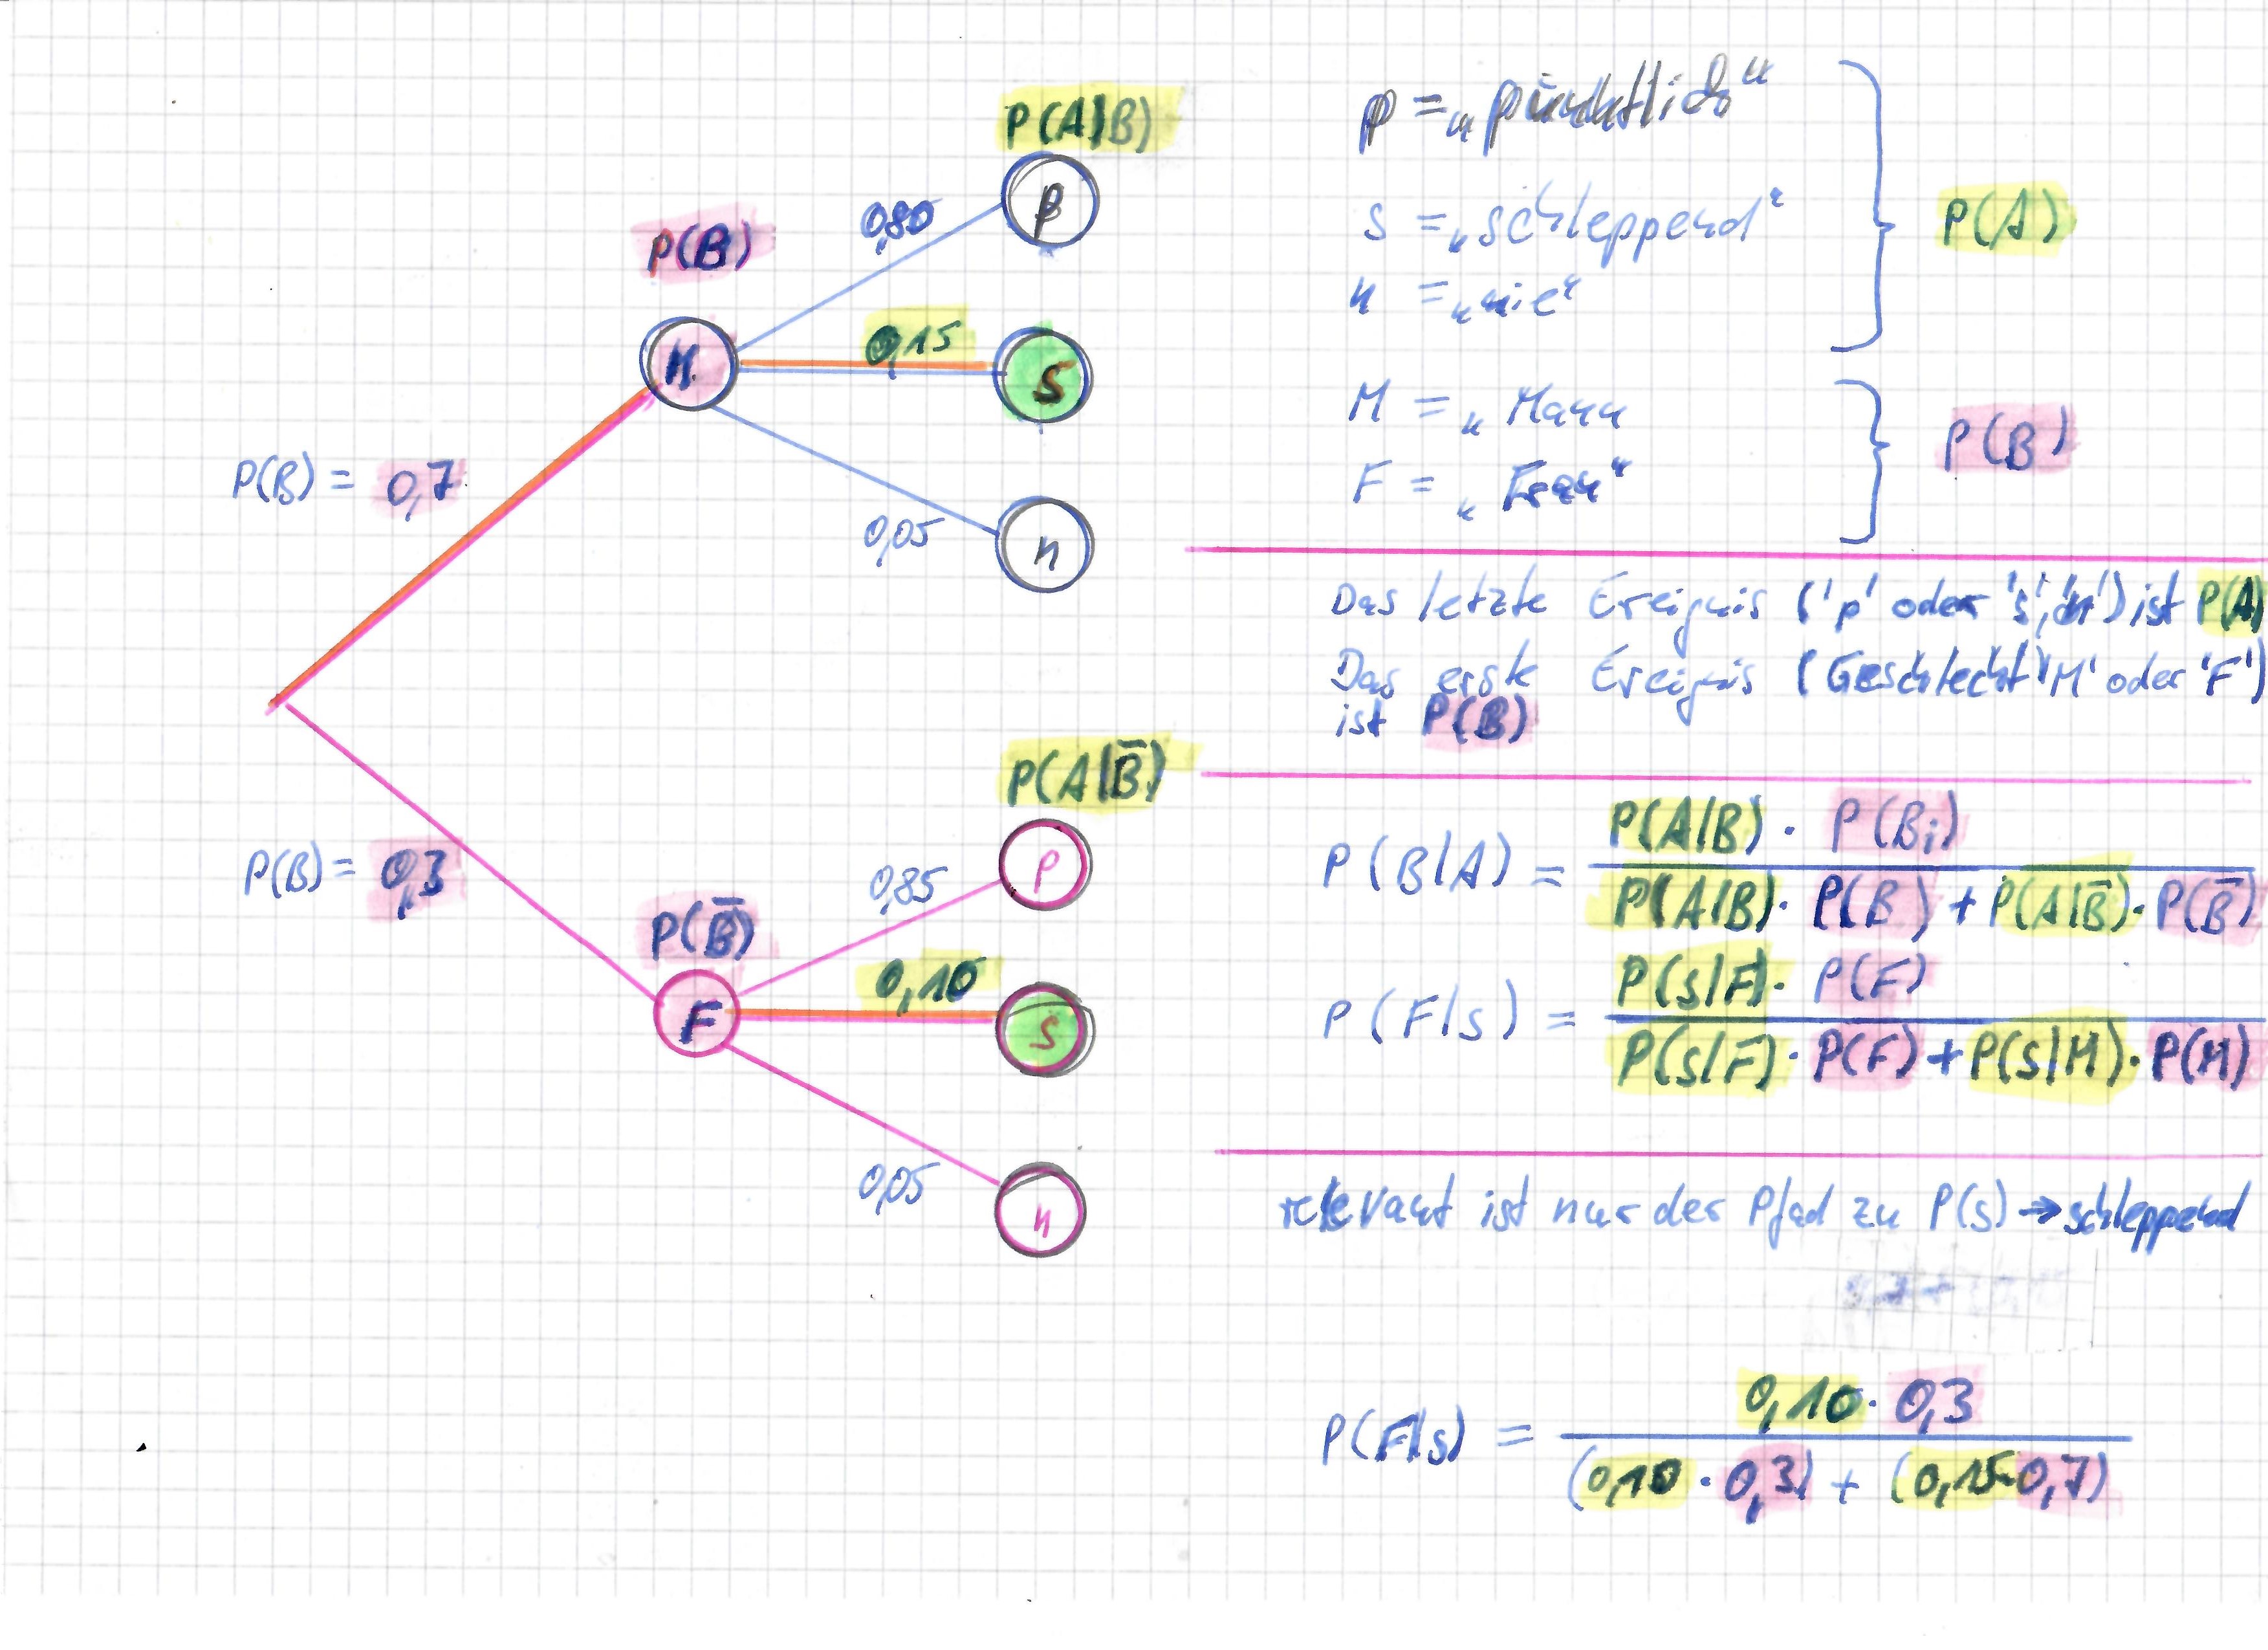 P(A|B)
0,80
p
P(B)
M
0,15
s
P(B) = 0,7
0,05
n
P(A|B̅)
P(B) = 0,3
0,85
p
P(B̅)
F
0,10
s
0,05
n
p = „pünktlich“
s = „schleppend“
n = „nie“
P(A)
M = „Mann
F = „Frau“
P(B)
Das letzte Ereignis ('p' oder 's', 'n') ist P(A)
Das erste Ereignis (Geschlecht 'M' oder 'F')
ist P(B)
P(A|B) · P(Bi)
P(B|A) =
P(A|B) · P(B) + P(A|B̅) · P(B̅)
P(s|F) · P(F)
P(F|s) =
P(s|F) · P(F) + P(s|M) · P(M)
relevant ist nur der Pfad zu P(s) → schleppend
0,10 · 0,3
P(F|s) =
(0,10 · 0,3) + (0,15 · 0,7)